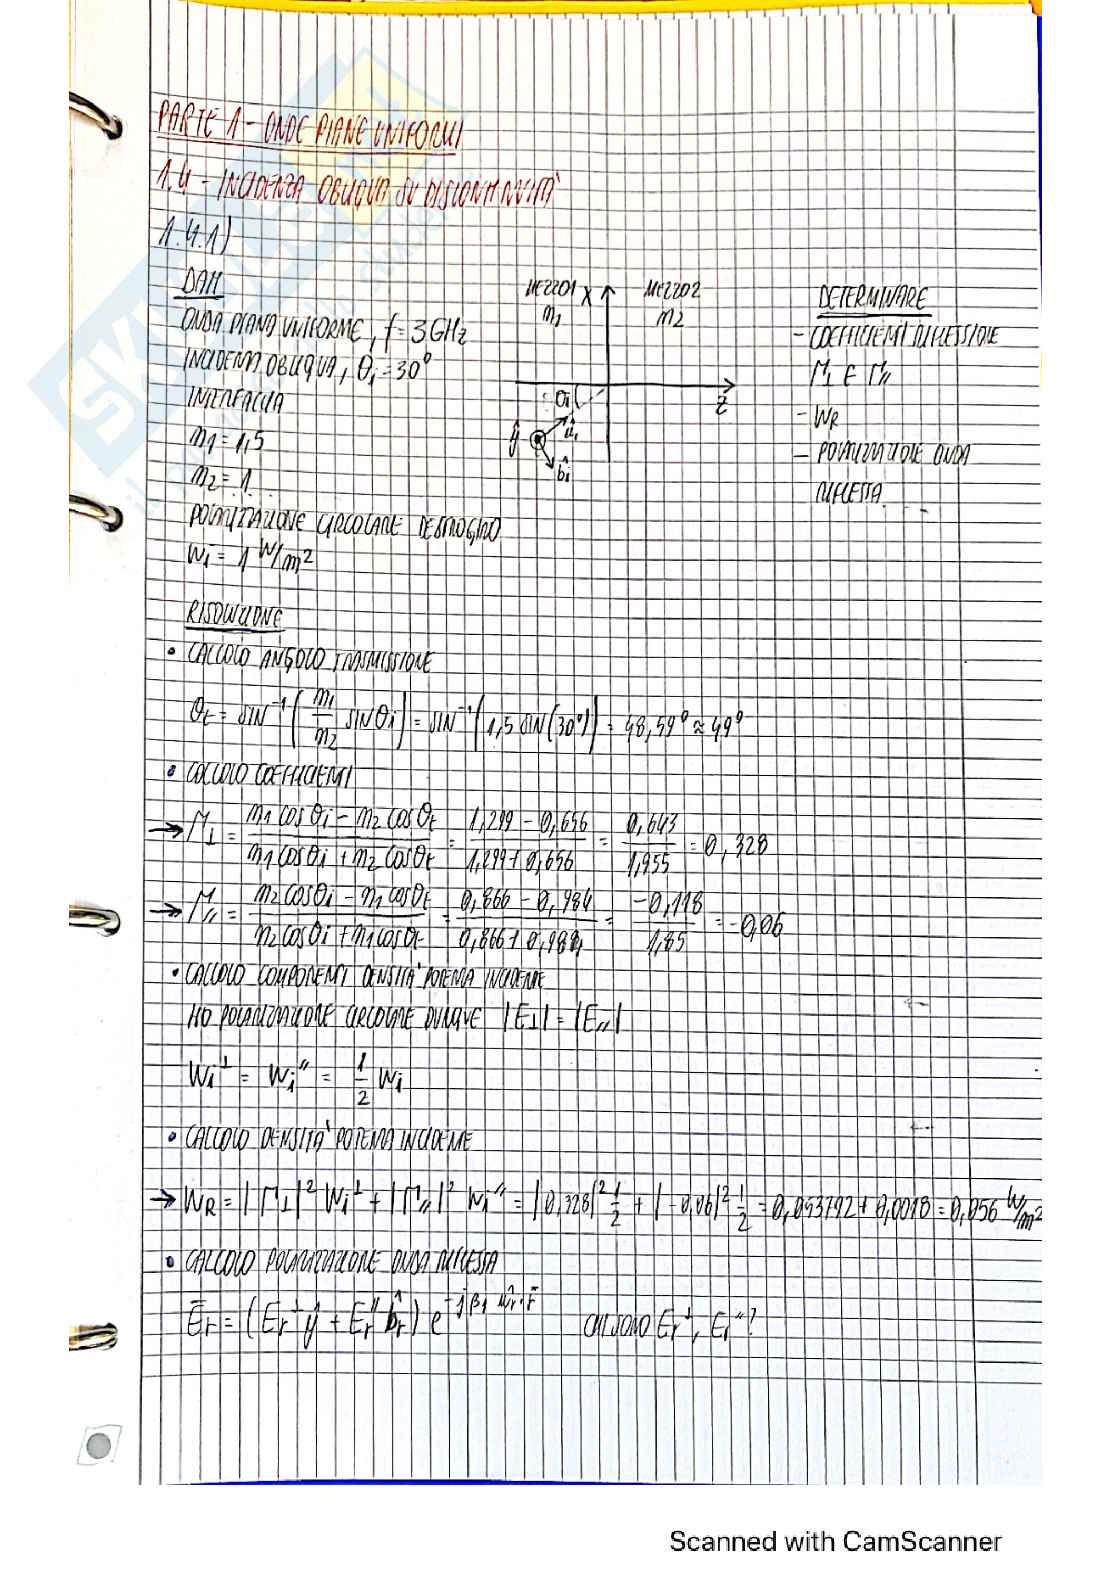 PARTE 1 - ONDE PIANE UNIFORMI
1.4 - INCIDENZA OBLIQUA SU DISCONTINUITÀ
1.4.1)
DATI
ONDA PIANA UNIFORME, f = 3 GHz
INCIDENZA OBLIQUA, θi = 30°
INTERFACCIA
m1 = 1,5
m2 = 1
POLARIZZAZIONE CIRCOLARE DESTROGIRO
Wi = 1 W/m²
MEZZO1 X MEZZO2
m1 m2
θi z
ŷ ûi
b̂i
DETERMINARE
- COEFFICIENTI RIFLESSIONE
Γ⊥ E Γ//
- WR
- POLARIZZAZIONE ONDA
RIFLESSA
RISOLUZIONE
• CALCOLO ANGOLO TRASMISSIONE
θt = SIN⁻¹(m1/m2 SINθi) = SIN⁻¹(1,5 SIN(30°)) = 48,59° ≈ 49°
• CALCOLO COEFFICIENTI
→ Γ⊥ = (m1 cosθi - m2 cosθt)/(m1 cosθi + m2 cosθt) = (1,299 - 0,656)/(1,299 + 0,656) = 0,643/1,955 = 0,328
→ Γ// = (m2 cosθi - m1 cosθt)/(m2 cosθi + m1 cosθt) = (0,866 - 0,984)/(0,866 + 0,984) = -0,118/1,85 = -0,06
• CALCOLO COMPONENTI DENSITÀ POTENZA INCIDENTE
HO POLARIZZAZIONE CIRCOLARE DUNQUE |E⊥| = |E//|
Wi⊥ = Wi// = 1/2 Wi
• CALCOLO DENSITÀ POTENZA INCIDENTE
→ WR = |Γ⊥|² Wi⊥ + |Γ//|² Wi// = |0,328|² 1/2 + |-0,06|² 1/2 = 0,053792 + 0,0018 = 0,056 W/m²
• CALCOLO POLARIZZAZIONE ONDA RIFLESSA
Ēr = (Er⊥ ŷ + Er// b̂r) e^(-jβ1 ûr·r̄) CHI SONO Er⊥, Er//?
Scanned with CamScanner